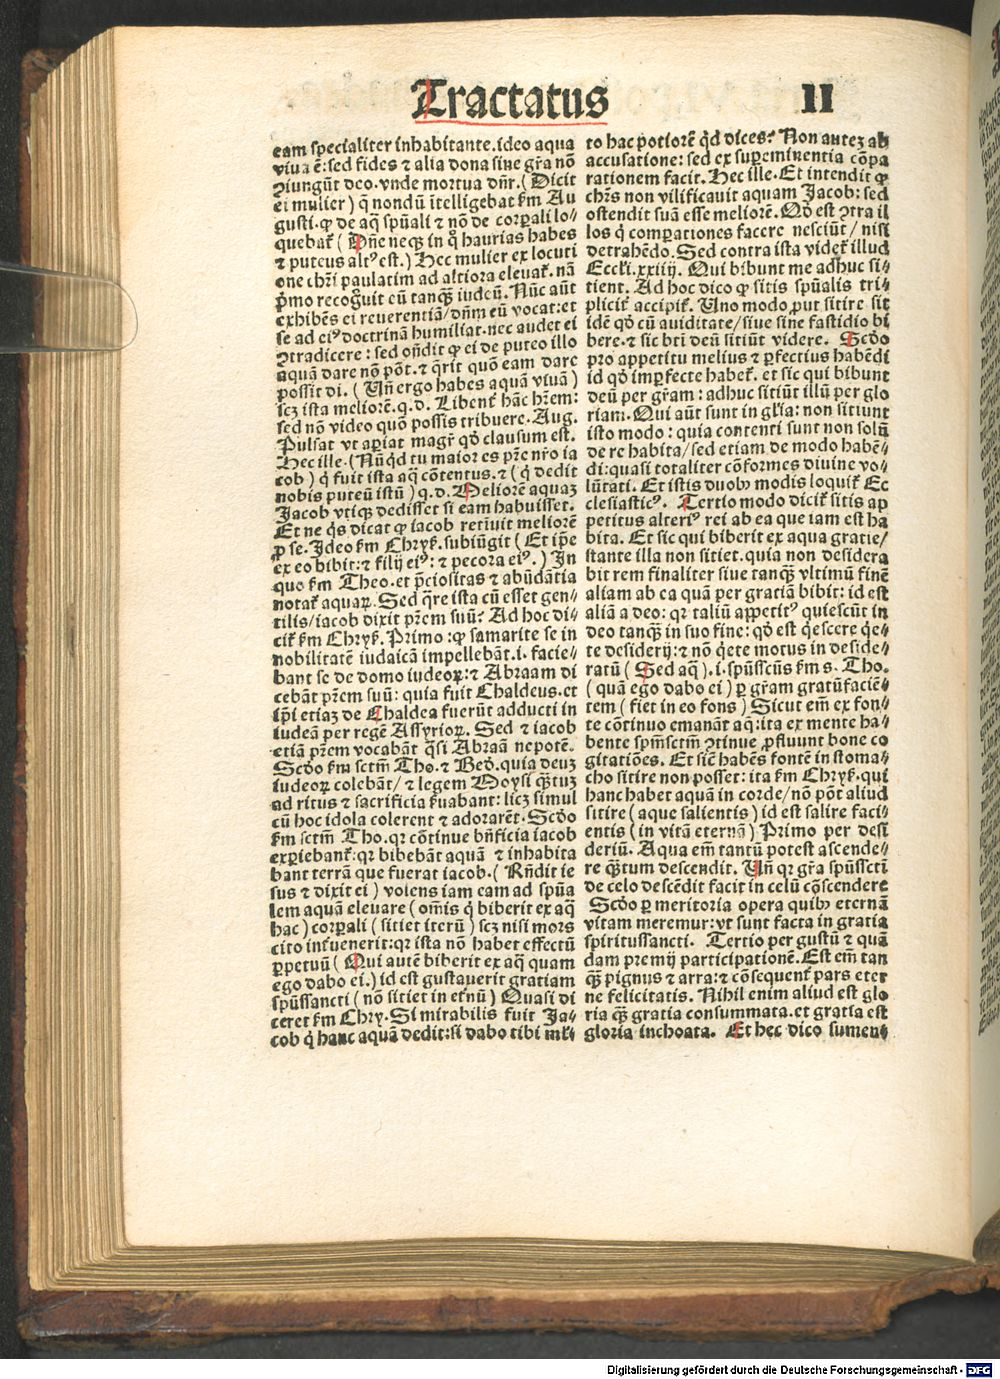 Tractatus II
eam specialiter inhabitante. ideo aqua
viua ē: sed fides ⁊ alia dona sine gr̄a nō
ꝯiungūt deo. vnde mortua dn̄r. (Dicit
ei mulier) q̄ nondū ītelligebat ẜm Au
gusti. ꝙ de aq̄ spūali ⁊ nō de corꝑali lo⸗
quebat̄ (Dn̄e neqꝫ in q̊ haurias habes
⁊ puteus altꝰ est.) Hec mulier ex locuti
one chr̄i paulatim ad altiora eleuat̄. nā
p̄mo recognuit eū tanqꝫ̄ iudeū. Nūc aūt
exhibēs ei reuerentiā/dn̄m eū vocat: et
se ad eiꝰ doctrinā humiliat. nec audet ei
ꝯtradicere: sed on̄dit ꝙ ei de puteo illo
aquā dare nō pōt. ⁊ q̄rit quō eam dare
possit di. (Un̄ ergo habes aquā viuā)
scꝫ ista meliorē. q.d. Libent̄ hāc hr̄em:
sed nō video quō possis tribuere. Aug.
Pulsat vt aꝑiat magr̄ qd̓ clausum est.
Hec ille. (Nūqd tu maior es pr̄e nr̄o ia
cob) q̇ fuit ista aq̄ cōtentus. ⁊ (q̇ dedit
nobis puteū istū) q.d. Meliorē aquaꝫ
Jacob vtiqꝫ dedisset si eam habuisset.
Et ne q̇s dicat ꝙ iacob retīuit meliorē
ꝓ se. Ideo ẜm Chryẜ. subiūgit (Et ip̄e
ex eo bibit: ⁊ filij eiꝰ: ⁊ pecora eiꝰ.) In
quo ẜm Theo. et p̄ciositas ⁊ abūdātia
notat̄ aquaꝝ. Sed q̄re ista cū esset gen⸗
tilis/iacob dixit pr̄em suū? Ad hoc di⸗
cit̄ ẜm Chryẜ. Primo: ꝙ samarite se in
nobilitatē iudaicā impellebāt. i. facie⸗
bant se de domo iudeoꝝ: ⁊ Abraam di
cebāt pr̄em suū: quia fuit Chaldeus. et
ip̄i etiaꝫ de Chaldea fuerūt adducti in
iudeā per regē Assyrioꝝ. Sed ⁊ iacob
etiā pr̄em vocabāt q̄si Abraā nepotē.
Scd̓o ẜm sctm̄ Tho. ⁊ Bed. quia deuꝫ
iudeoꝝ colebāt/⁊ legem Moysi qꝫ̄tuꝫ
ad ritus ⁊ sacrificia ẜuabant: licꝫ simul
cū hoc idola colerent ⁊ adorarēt. Scd̓o
ẜm sctm̄ Tho. qr cōtinue bn̄ficia iacob
exꝑiebant̄: qr bibebāt aquā ⁊ inhabita
bant terrā que fuerat iacob. (Rn̄dit ie
sus ⁊ dixit ei) volens iam eam ad spūa
lem aquā eleuare (om̄is q̇ biberit ex aq̄
hac) corꝑali (sitiet iterū) scꝫ nisi mors
cito inẜuenerit: qr ista nō habet effectū
ꝑpetuū (Qui autē biberit ex aq̄ quam
ego dabo ei.) id est gustauerit gratiam
spūssancti (nō sitiet in et̄nū) Quasi di
ceret ẜm Chry. Si mirabilis fuit Ja⸗
cob q̇ hanc aquā dedit: si dabo tibi ml̄⸗
to hac potiorē qd̓ dices? Non auteꝫ ab
accusatione: sed ex suꝑeminentia cōpa
rationem facit. Hec ille. Et intendit ꝙ
chr̄s non vilificauit aquam Jacob: sed
ostendit suā esse meliorē. Qd̓ est ꝯtra il
los q̇ comꝑationes facere nesciūt/nisi
detrahēdo. Sed contra ista videt̄ illud
Eccl̓i. xxiiij. Qui bibunt me adhuc si⸗
tient. Ad hoc dico ꝙ sitis spūalis tri⸗
plicit̄ accipit̄. Uno modo ꝓut sitire sit
idē qd̓ cū auiditate/siue sine fastidio bi
bere. ⁊ sic bti deū sitiūt videre. Scd̓o
pro appetitu melius ⁊ ꝑfectius habēdi
id qd̓ imꝑfecte habet̄. et sic qui bibunt
deū per gr̄am: adhuc sitiūt illū per glo
riam. Qui aūt sunt in gl̓ia: non sitiunt
isto modo: quia contenti sunt non solū
de re habita/sed etiam de modo habē⸗
di: quasi totaliter cōformes diuine vo⸗
lūtati. Et istis duobꝫ modis loquit̄ Ec
clesiasticꝰ. Tertio modo dicit̄ sitis ap
petitus alteriꝰ rei ab ea que iam est ha
bita. Et sic qui biberit ex aqua gratie/
stante illa non sitiet. quia non desidera
bit rem finaliter siue tanqꝫ̄ vltimū finē
aliam ab ea quā per gratiā bibit: id est
aliā a deo: qr taliū appetitꝰ quiescūt in
deo tanqꝫ̄ in suo fine: qd̓ est q̇escere q̇e⸗
te desiderij: ⁊ nō q̇ete motus in deside⸗
ratū (Sed aq̄). i. spūsscūs ẜm s. Tho.
(quā ego dabo ei) ꝑ gr̄am gratūfaciē⸗
tem (fiet in eo fons) Sicut em̄ ex fon⸗
te cōtinuo emanāt aq̄: ita ex mente ha⸗
bente spm̄sctm̄ ꝯtinue ꝓfluunt bone co
gitatiōes. Et sic̄ habēs fontē in stoma⸗
cho sitire non posset: ita ẜm Chryẜ. qui
hanc habet aquā in corde/nō pōt aliud
sitire (aque salientis) id est salire faci⸗
entis (in vitā eternā) Primo per desi
deriū. Aqua em̄ tantū potest ascende⸗
re qꝫ̄tum descendit. Un̄ qr gr̄a spūsscti
de celo descēdit facit in celū cōscendere
Scd̓o ꝑ meritoria opera quibꝫ eternā
vitam meremur: vt sunt facta in gratia
spiritussancti. Tertio per gustū ⁊ quā
dam premij participationē. Est em̄ tan
qꝫ̄ pignus ⁊ arra: ⁊ cōsequent̄ pars eter
ne felicitatis. Nihil enim aliud est glo
ria qꝫ̄ gratia consummata. et gratia est
gloria inchoata. Et hec dico sumen⸗
Digitalisierung gefördert durch die Deutsche Forschungsgemeinschaft - DFG